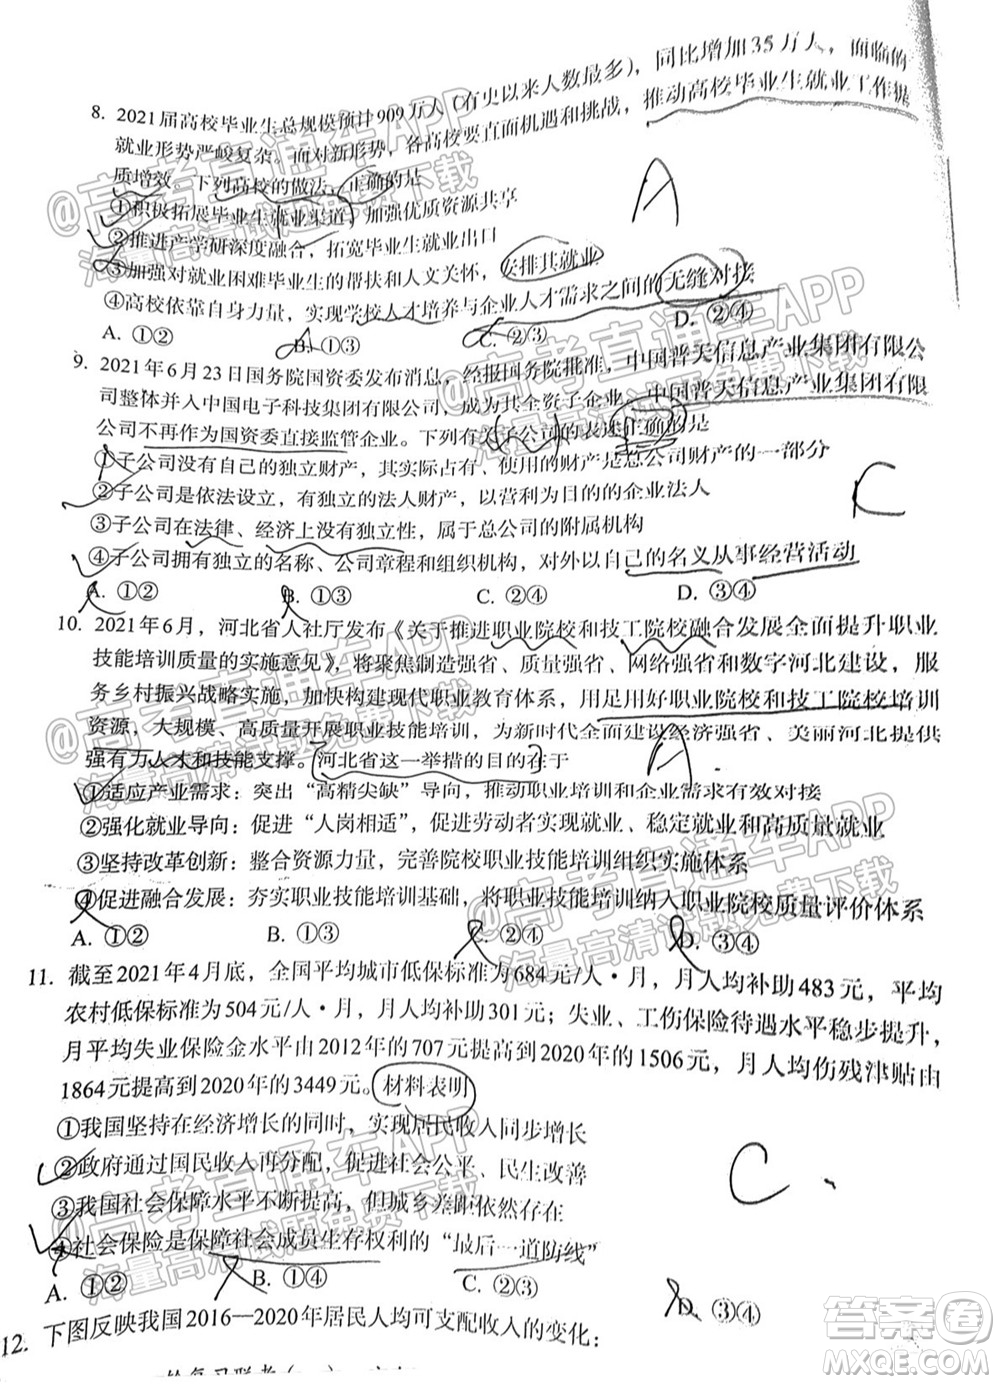 8. 2021届高校毕业生总规模预计909万人（有史以来人数最多），同比增加35万人，面临的
就业形势严峻复杂。面对新形势，各高校要直面机遇和挑战，推动高校毕业生就业工作提
质增效。下列高校的做法，正确的是
①积极拓展毕业生就业渠道，加强优质资源共享
②推进产学研深度融合，拓宽毕业生就业出口
③加强对就业困难毕业生的帮扶和人文关怀，安排其就业
④高校依靠自身力量，实现学校人才培养与企业人才需求之间的无缝对接
A. ①② B. ①③ C. ②③ D. ②④
A
9. 2021年6月23日国务院国资委发布消息，经报国务院批准，中国普天信息产业集团有限公
司整体并入中国电子科技集团有限公司，成为其全资子企业，中国普天信息产业集团有限
公司不再作为国资委直接监管企业。下列有关子公司的表述正确的是
①子公司没有自己的独立财产，其实际占有、使用的财产是总公司财产的一部分
②子公司是依法设立，有独立的法人财产，以营利为目的的企业法人
③子公司在法律、经济上没有独立性，属于总公司的附属机构
④子公司拥有独立的名称、公司章程和组织机构，对外以自己的名义从事经营活动
A. ①② B. ①③ C. ②④ D. ③④
C
10. 2021年6月，河北省人社厅发布《关于推进职业院校和技工院校融合发展全面提升职业
技能培训质量的实施意见》，将聚焦制造强省、质量强省、网络强省和数字河北建设，服
务乡村振兴战略实施，加快构建现代职业教育体系，用足用好职业院校和技工院校培训
资源，大规模、高质量开展职业技能培训，为新时代全面建设经济强省、美丽河北提供
强有力人才和技能支撑。河北省这一举措的目的在于
①适应产业需求：突出“高精尖缺”导向，推动职业培训和企业需求有效对接
②强化就业导向：促进“人岗相适”，促进劳动者实现就业、稳定就业和高质量就业
③坚持改革创新：整合资源力量，完善院校职业技能培训组织实施体系
④促进融合发展：夯实职业技能培训基础，将职业技能培训纳入职业院校质量评价体系
A. ①② B. ①③ C. ②④ D. ③④
A
11. 截至2021年4月底，全国平均城市低保标准为684元/人·月，月人均补助483元，平均
农村低保标准为504元/人·月，月人均补助301元；失业、工伤保险待遇水平稳步提升，
月平均失业保险金水平由2012年的707元提高到2020年的1506元，月人均伤残津贴由
1864元提高到2020年的3449元。材料表明
①我国坚持在经济增长的同时，实现居民收入同步增长
②政府通过国民收入再分配，促进社会公平、民生改善
③我国社会保障水平不断提高，但城乡差距依然存在
④社会保险是保障社会成员生存权利的“最后一道防线”
A. ①② B. ①④ C. ②③ D. ③④
C
12. 下图反映我国2016—2020年居民人均可支配收入的变化：
@高考直通车APP
海量高清试题免费下载
@高考直通车APP
海量高清试题免费下载
@高考直通车APP
海量高清试题免费下载
@高考直通车APP
海量高清试题免费下载
@高考直通车APP
海量高清试题免费下载
答案圈
MXQE.COM